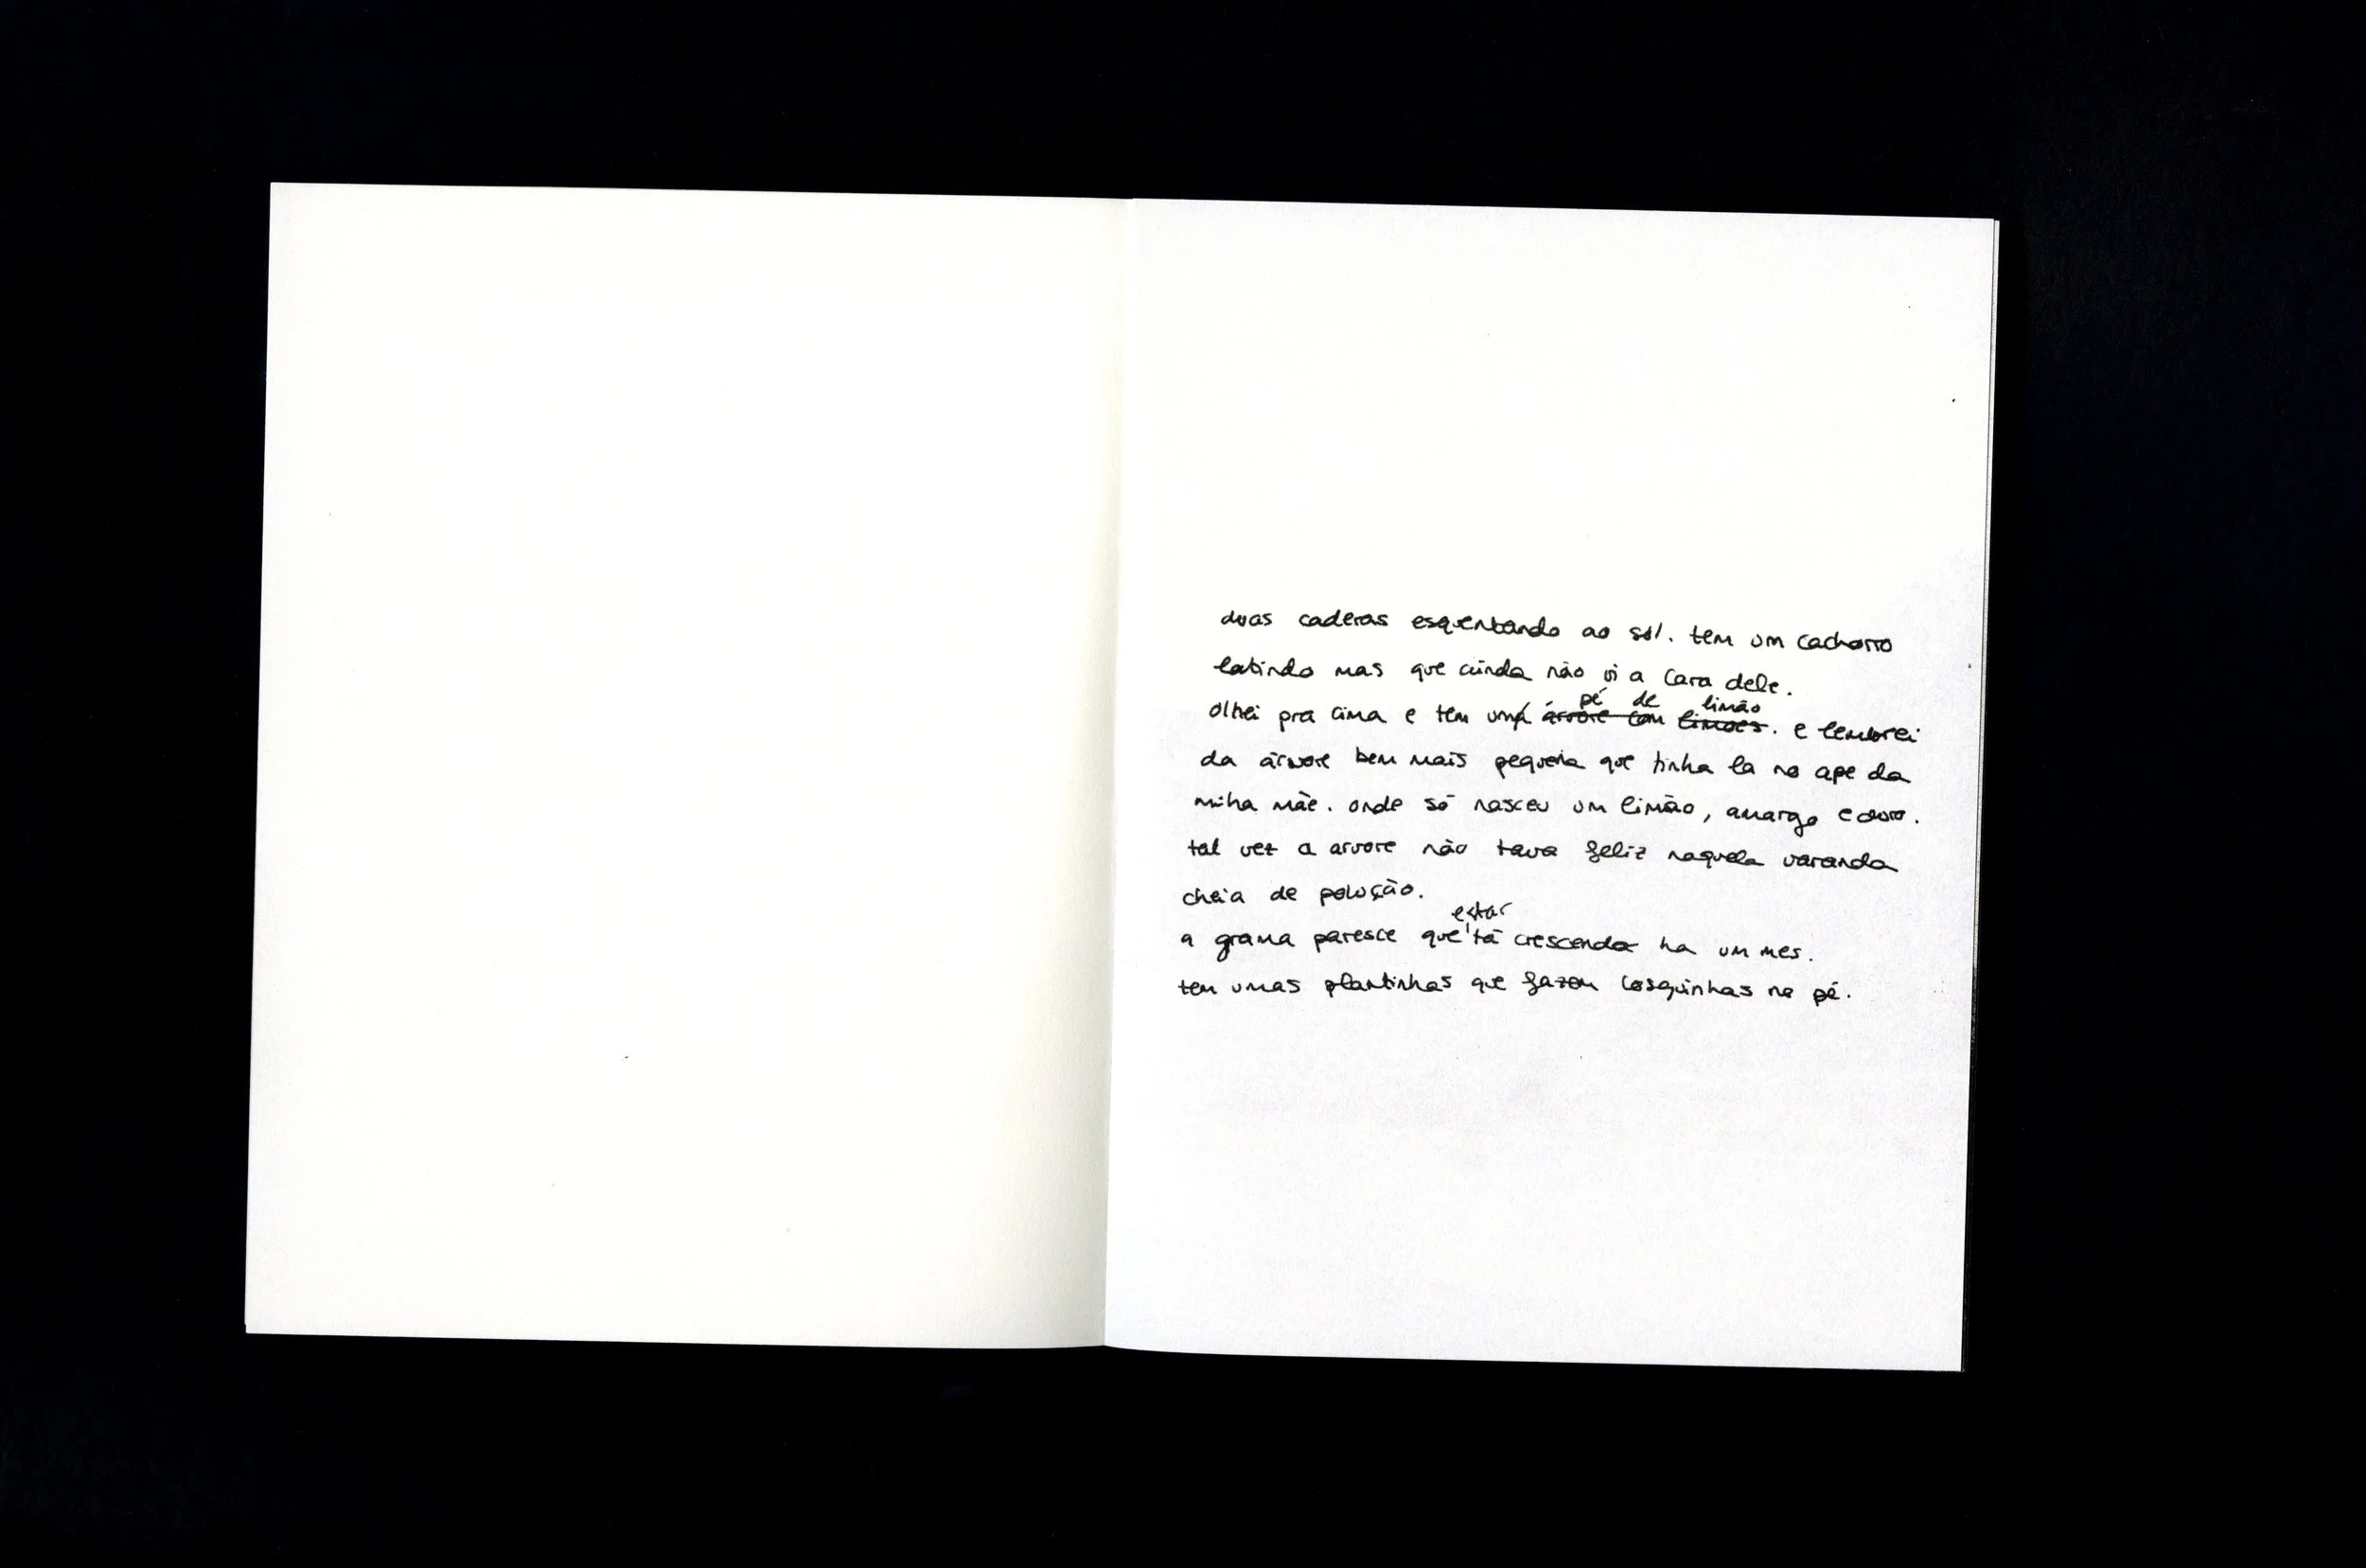 duas caderas esquentando ao sol. tem um cachorro
latindo mas que ainda não vi a cara dele.
pé de limão
olhei pra cima e tem uma árvore com limões. e lembrei
da árvore bem mais pequena que tinha la no ape da
minha mãe. onde só nasceu um limão, amargo e duro.
tal vez a arvore não tava feliz naquela varanda
cheia de polução.
estar
a grama paresce que tá crescendo ha um mes.
tem umas plantinhas que fazem cosquinhas no pé.